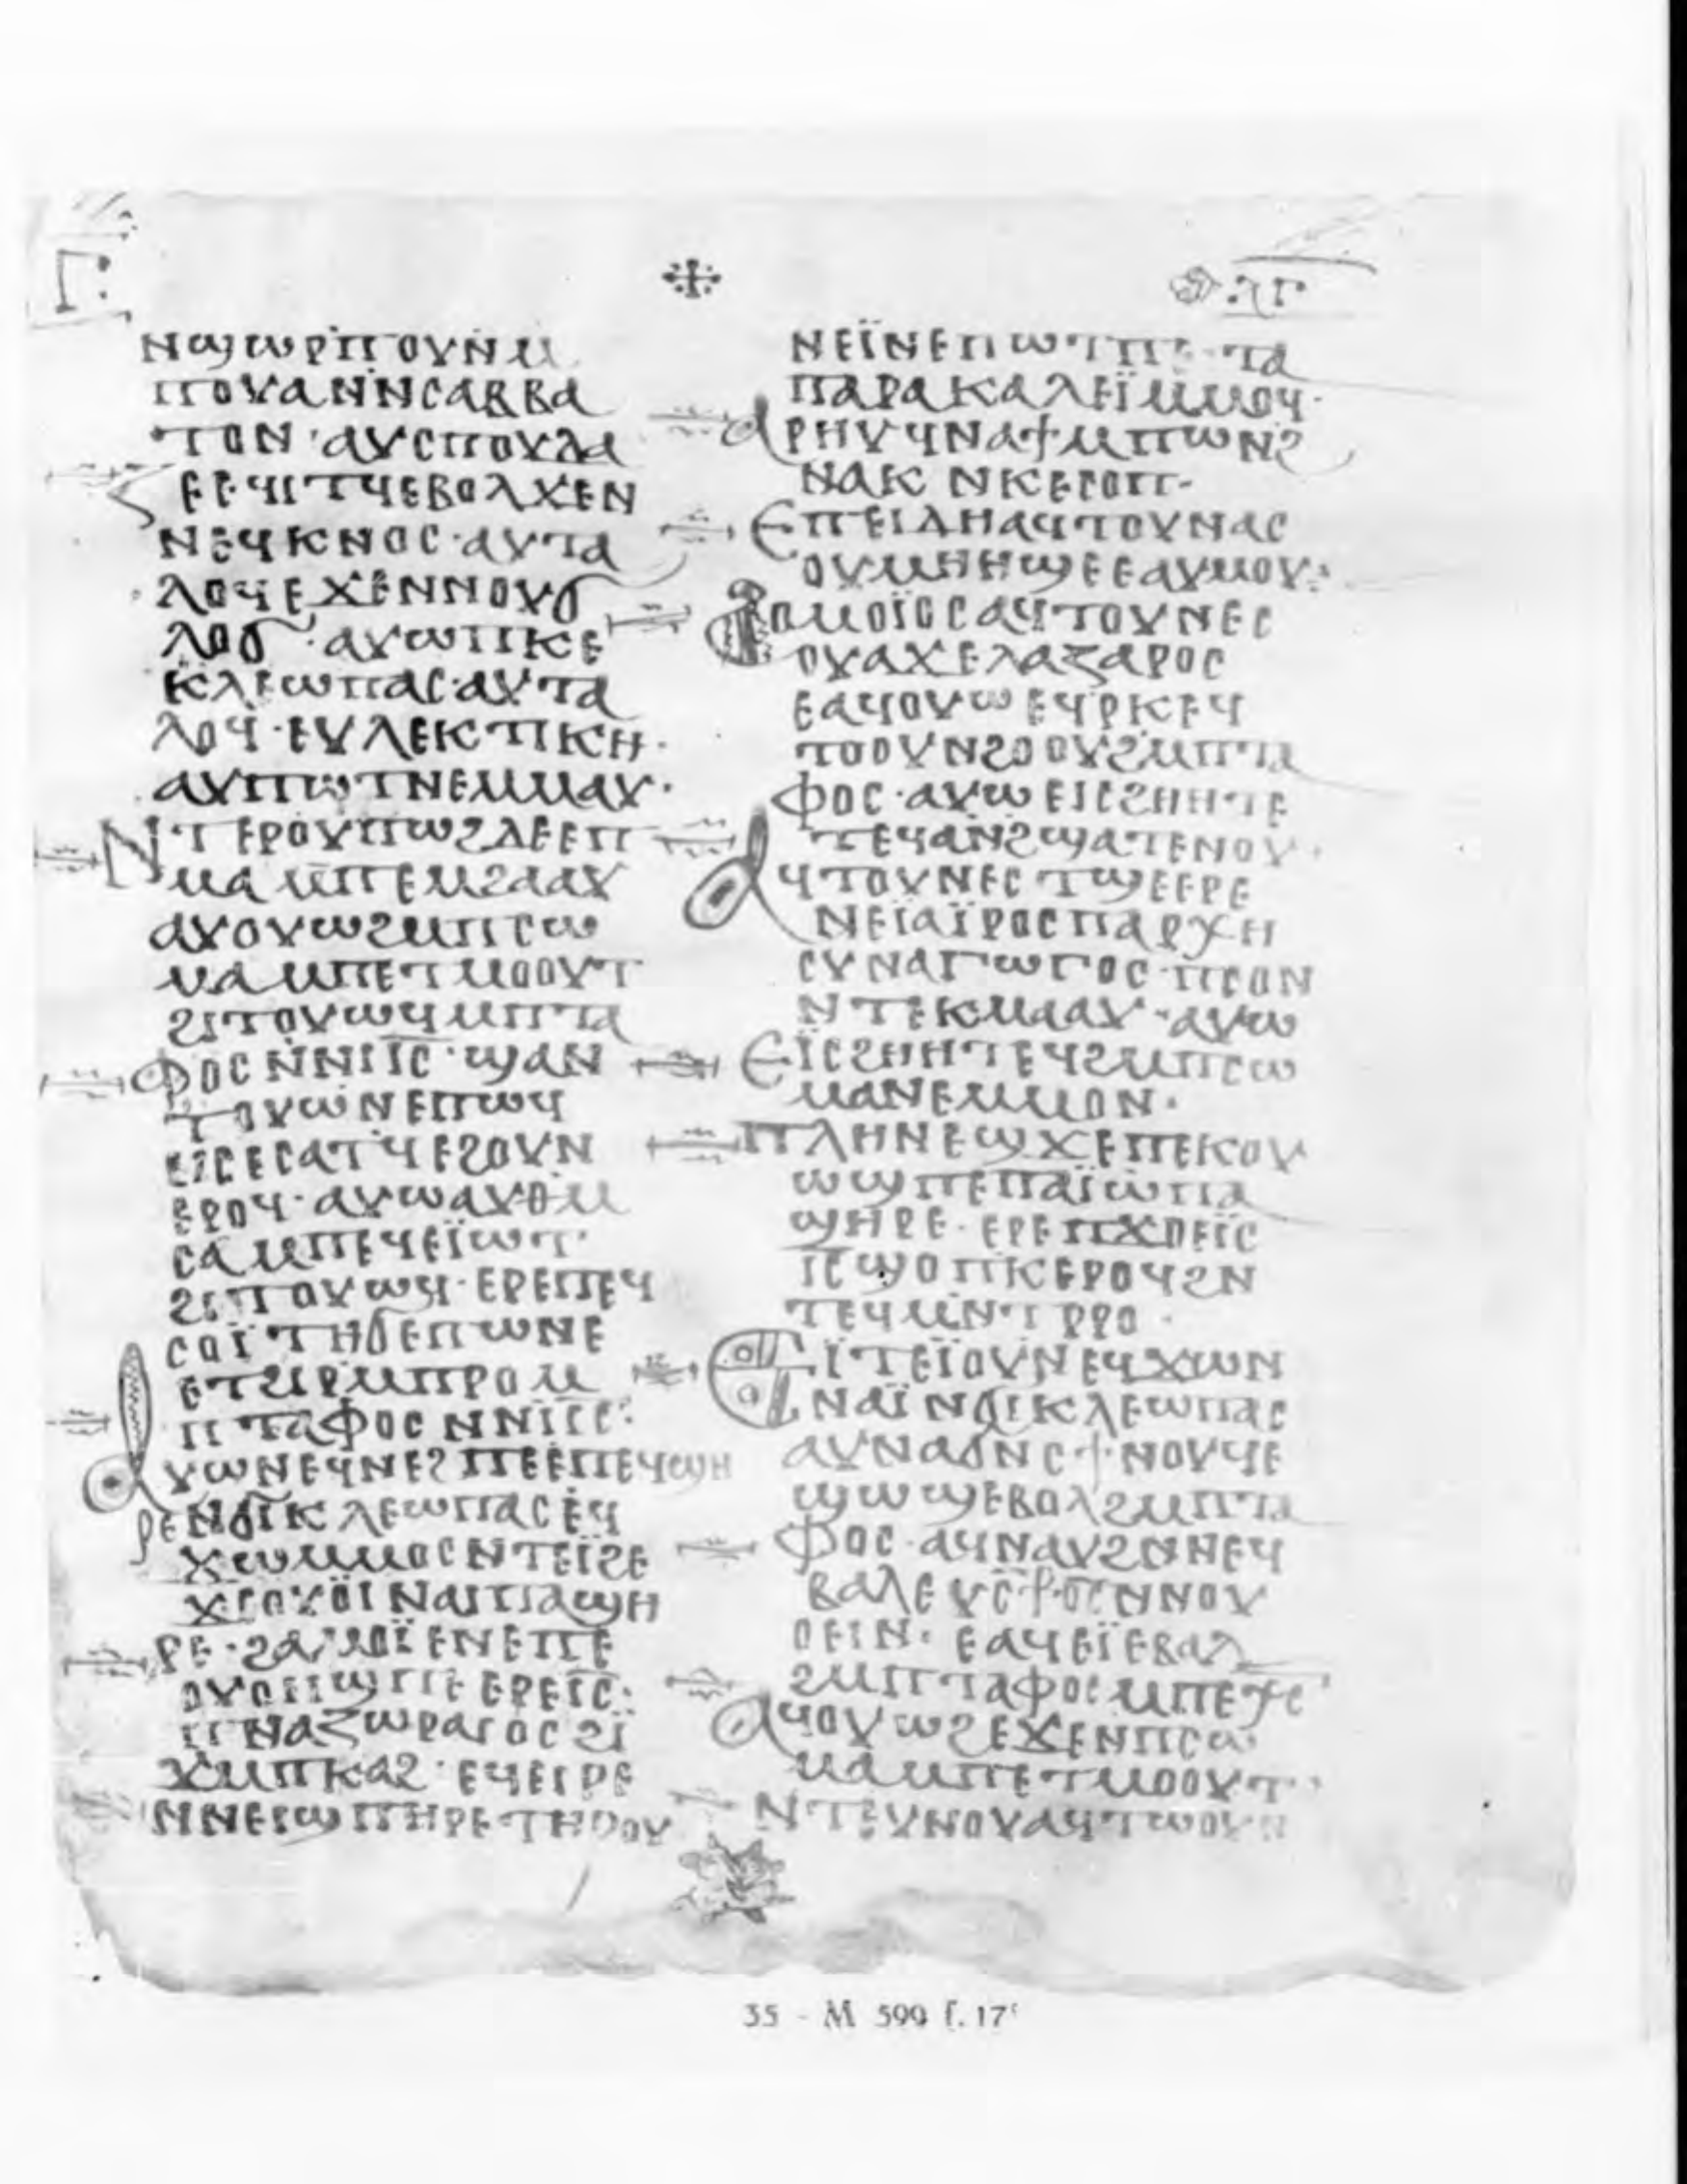 Γ
ⲗⲅ
ⲛϣⲱⲣⲡ ⲡⲟⲩⲛⲙ
ⲡⲟⲩⲁ ⲛⲛⲥⲁⲃⲃⲁ
ⲧⲟⲛ · ⲁⲩⲥⲡⲟⲩⲇⲁ
ⲍⲉ ⲉϥⲓⲧϥ ⲉⲃⲟⲗ ϫⲉⲛ
ⲛⲉϥⲕⲛⲟⲥ · ⲁⲩⲧⲁ
ⲗⲟϥ ⲉϫⲉⲛ ⲛⲟⲩϭ
ⲗⲟϭ · ⲁⲩⲱ ⲡⲕⲉ
ⲕⲗⲉⲱⲡⲁⲥ · ⲁⲩⲧⲁ
ⲗⲟϥ · ⲉⲩⲗⲉⲕⲧⲓⲕⲏ ·
ⲁⲩⲡⲱⲧ ⲛⲉⲙⲙⲁⲩ ·
ⲛⲧⲉⲣⲟⲩⲡⲱϩ ⲇⲉ ⲉⲡ
ⲙⲁ ⲙⲡⲉⲙϩⲁⲁⲩ
ⲁⲩⲟⲩⲱϩ ⲙⲡⲥⲱ
ⲙⲁ ⲙⲡⲉⲧⲙⲟⲟⲩⲧ
ϩⲓⲧⲟⲩⲱϥ ⲙⲡⲧⲁ
ⲫⲟⲥ ⲛⲛⲓⲥ · ϣⲁⲛ
ⲧⲟⲩⲱⲛ ⲉⲡⲱϥ
ⲉⲓⲥ ⲉⲥⲁⲧϥ ⲉϩⲟⲩⲛ
ⲉⲣⲟϥ · ⲁⲩⲱ ⲁⲩϭⲙ
ⲥⲁ ⲙⲡⲉϥⲉⲓⲱⲧ ·
ϩⲓⲧⲟⲩⲱϥ · ⲉⲣⲉⲡⲉϥ
ⲥⲟⲓ ⲧⲏϭ ⲉⲡⲱⲛⲉ
ⲉⲧϩⲓⲣⲙ ⲡⲣⲟ ⲙ
ⲡⲧⲁⲫⲟⲥ ⲛⲛⲓⲥ :
ⲁⲩⲱ ⲛⲉϥⲛⲉϩⲡⲉ ⲉⲡⲉϥϣⲏ
ⲣⲉ ⲛϭⲓ ⲕⲗⲉⲱⲡⲁⲥ ⲉϥ
ϫⲱ ⲙⲙⲟⲥ ⲛⲧⲉⲓϩⲉ
ϫⲉ ⲟⲩⲟⲓ ⲛⲁⲓ ⲡⲁϣⲏ
ⲣⲉ · ϩⲁⲙⲟⲓ ⲉⲛⲉⲡⲉ
ⲟⲩⲟⲉⲓϣ ⲡⲉ ⲉⲣⲉⲓⲥ :
ⲡⲛⲁⲍⲱⲣⲁⲓⲟⲥ ϩⲓ
ϫⲙ ⲡⲕⲁϩ · ⲉϥⲉⲓⲣⲉ
ⲛⲛⲉⲓϣⲡⲏⲣⲉ ⲧⲏⲣⲟⲩ
ⲛⲉⲓⲛⲉⲡⲱⲧ ⲡⲉ · ⲧⲁ
ⲡⲁⲣⲁⲕⲁⲗⲉⲓ ⲙⲙⲟϥ ·
ⲁⲣⲏⲩ ϥⲛⲁϯ ⲙⲡⲱⲛϩ
ⲛⲁⲕ ⲛⲕⲉⲥⲟⲡ ·
ⲉⲡⲉⲓⲇⲏ ⲁϥⲧⲟⲩⲛⲁⲥ
ⲟⲩⲙⲏⲏϣⲉ ⲉⲁⲩⲙⲟⲩ :
ϩⲟⲙⲟⲓⲥ ⲥⲁϥⲧⲟⲩⲛⲉⲥ
ⲟⲩⲁ ϫⲉ ⲗⲁⲍⲁⲣⲟⲥ
ⲉⲁϥⲟⲩⲱ ⲉϥⲣⲕⲉϥ
ⲧⲟⲟⲩ ⲛϩⲟⲟⲩ ϩⲙ ⲡⲧⲁ
ⲫⲟⲥ · ⲁⲩⲱ ⲉⲓⲥϩⲏⲏⲧⲉ
ⲧⲉϥⲁⲛϩ ϣⲁ ⲧⲉⲛⲟⲩ ·
ⲁϥⲧⲟⲩⲛⲉⲥ ⲧϣⲉⲉⲣⲉ
ⲛⲉⲓⲁⲓⲣⲟⲥ ⲡⲁⲣⲭⲏ
ⲥⲩⲛⲁⲅⲱⲅⲟⲥ · ⲡⲥⲟⲛ
ⲛⲧⲉⲕⲙⲁⲁⲩ · ⲁⲩⲱ
ⲉⲓⲥϩⲏⲏⲧⲉ ϥϩⲙ ⲡⲥⲱ
ⲙⲁ ⲛⲉⲙⲙⲟⲛ ·
ⲡⲗⲏⲛ ⲉϣϫⲉ ⲡⲉⲕⲟⲩ
ⲱϣ ⲡⲉ ⲡⲁⲓ ⲱ ⲡⲁ
ϣⲏⲣⲉ · ⲉⲣⲉ ⲡϫⲟⲉⲓⲥ
ⲓⲥ ϣⲟⲡⲕ ⲉⲣⲟϥ ϩⲛ
ⲧⲉϥⲙⲛⲧⲣⲣⲟ ·
ⲉⲓⲧⲉⲓ ⲟⲩⲛ ⲉϥϫⲱ ⲛ
ⲛⲁⲓ ⲛϭⲓ ⲕⲗⲉⲱⲡⲁⲥ
ⲁⲩⲛⲁϭ ⲛⲥϯⲛⲟⲩϥⲉ
ϣⲱϣ ⲉⲃⲟⲗ ϩⲙ ⲡⲧⲁ
ⲫⲟⲥ · ⲁϥⲛⲁⲩ ϩⲛ ⲛⲉϥ
ⲃⲁⲗ ⲉⲩⲥϯⲟⲥ ⲛⲛⲟⲩ
ⲟⲉⲓⲛ · ⲉⲁϥⲉⲓ ⲉⲃⲟⲗ
ϩⲙ ⲡⲧⲁⲫⲟⲥ ⲙⲡⲉⲭⲥ
ⲁϥⲟⲩⲱϩ ⲉϫⲉⲛ ⲡⲥⲱ
ⲙⲁ ⲙⲡⲉⲧⲙⲟⲟⲩⲧ ·
ⲛⲧⲉⲩⲛⲟⲩ ⲁϥⲧⲱⲟⲩⲛ
35 - M 599 f. 17ʳ